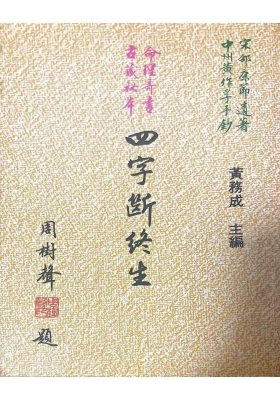 宋邵康節遺著
中州黃作孚手鈔
黃務成 主編
命理奇書
古藏秘本
四字斷終生
周樹聲 題